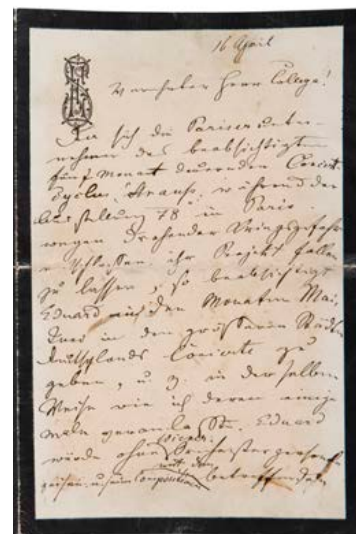 16 April
Verehrter Herr College!
Da sich die Pariser unter-
nehmer des beabsichtigten
fünf Monat dauernden Concert
Cyclus, "Strauss", während der
Ausstellung 78 in Paris
wegen drohender Kriegsgefahr
entschlossen ihr Projekt fallen
zu lassen, so beabsichtigt
Eduard in den Monaten Mai,
Juni in den größeren Städten
Deutschlands Concerte zu
geben, u. z. in derselben
Weise wie ich deren einige
mal veranlaßte. Eduard
würde ohne Orchester
mit den
Compositionen betreffenden